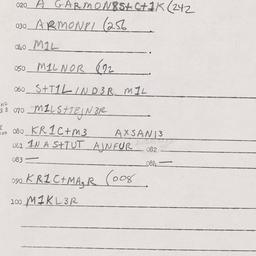 020 A GARMON8S+C+1K (242
030 ARMONPI (256
040 M1L
050 M1LNOR (92
060 S++1L IND3R M1L
070 M1LS++EJN3R
080 KR1C+M3 AXSAN13
081 1N A S+TUT AJNFUR 082
083 — 084 —
090 KR1C+MA3R (008
100 M1KL3R